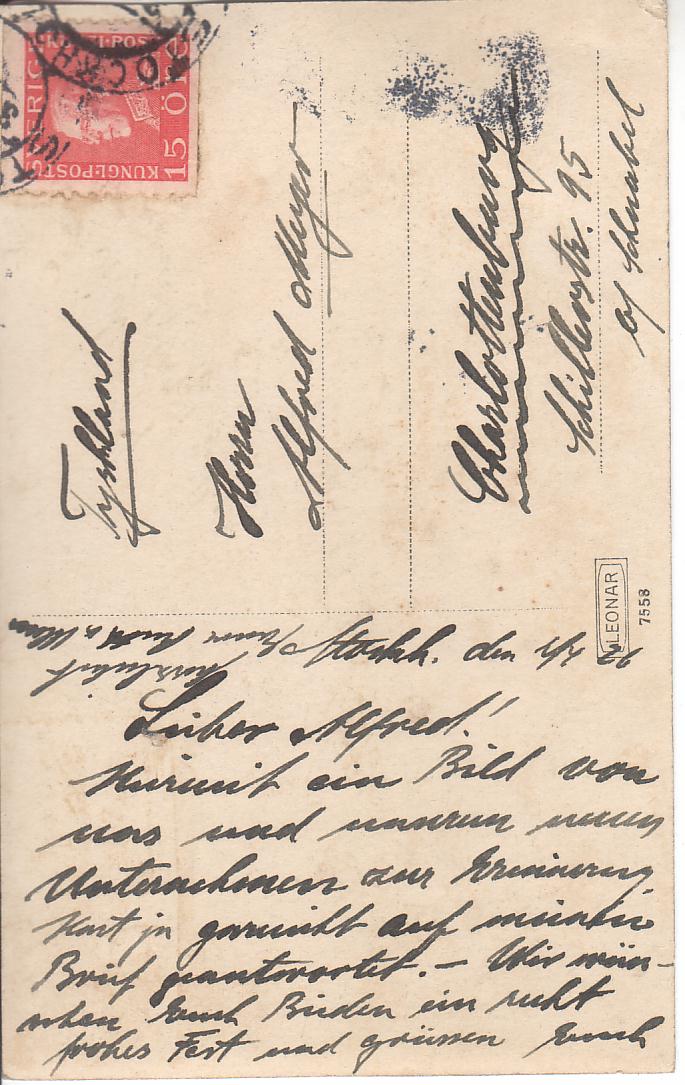 SVERIGE
KUNGL·POST
15 ÖRE
STOCKH
Tyskland
Herrn
Alfred Meyer
Charlottenburg
Schillerstr. 95
b/ Schnabel
LEONAR
7558
Stockh. den
Lieber Alfred!
Hiermit ein Bild von
uns und unserem neuen
Unternehmen zur Erinnerung.
Hast ja garnicht auf meinen
Brief geantwortet. – Wir wün-
schen Euch Beiden ein recht
frohes Fest und grüssen Euch
herzlichst